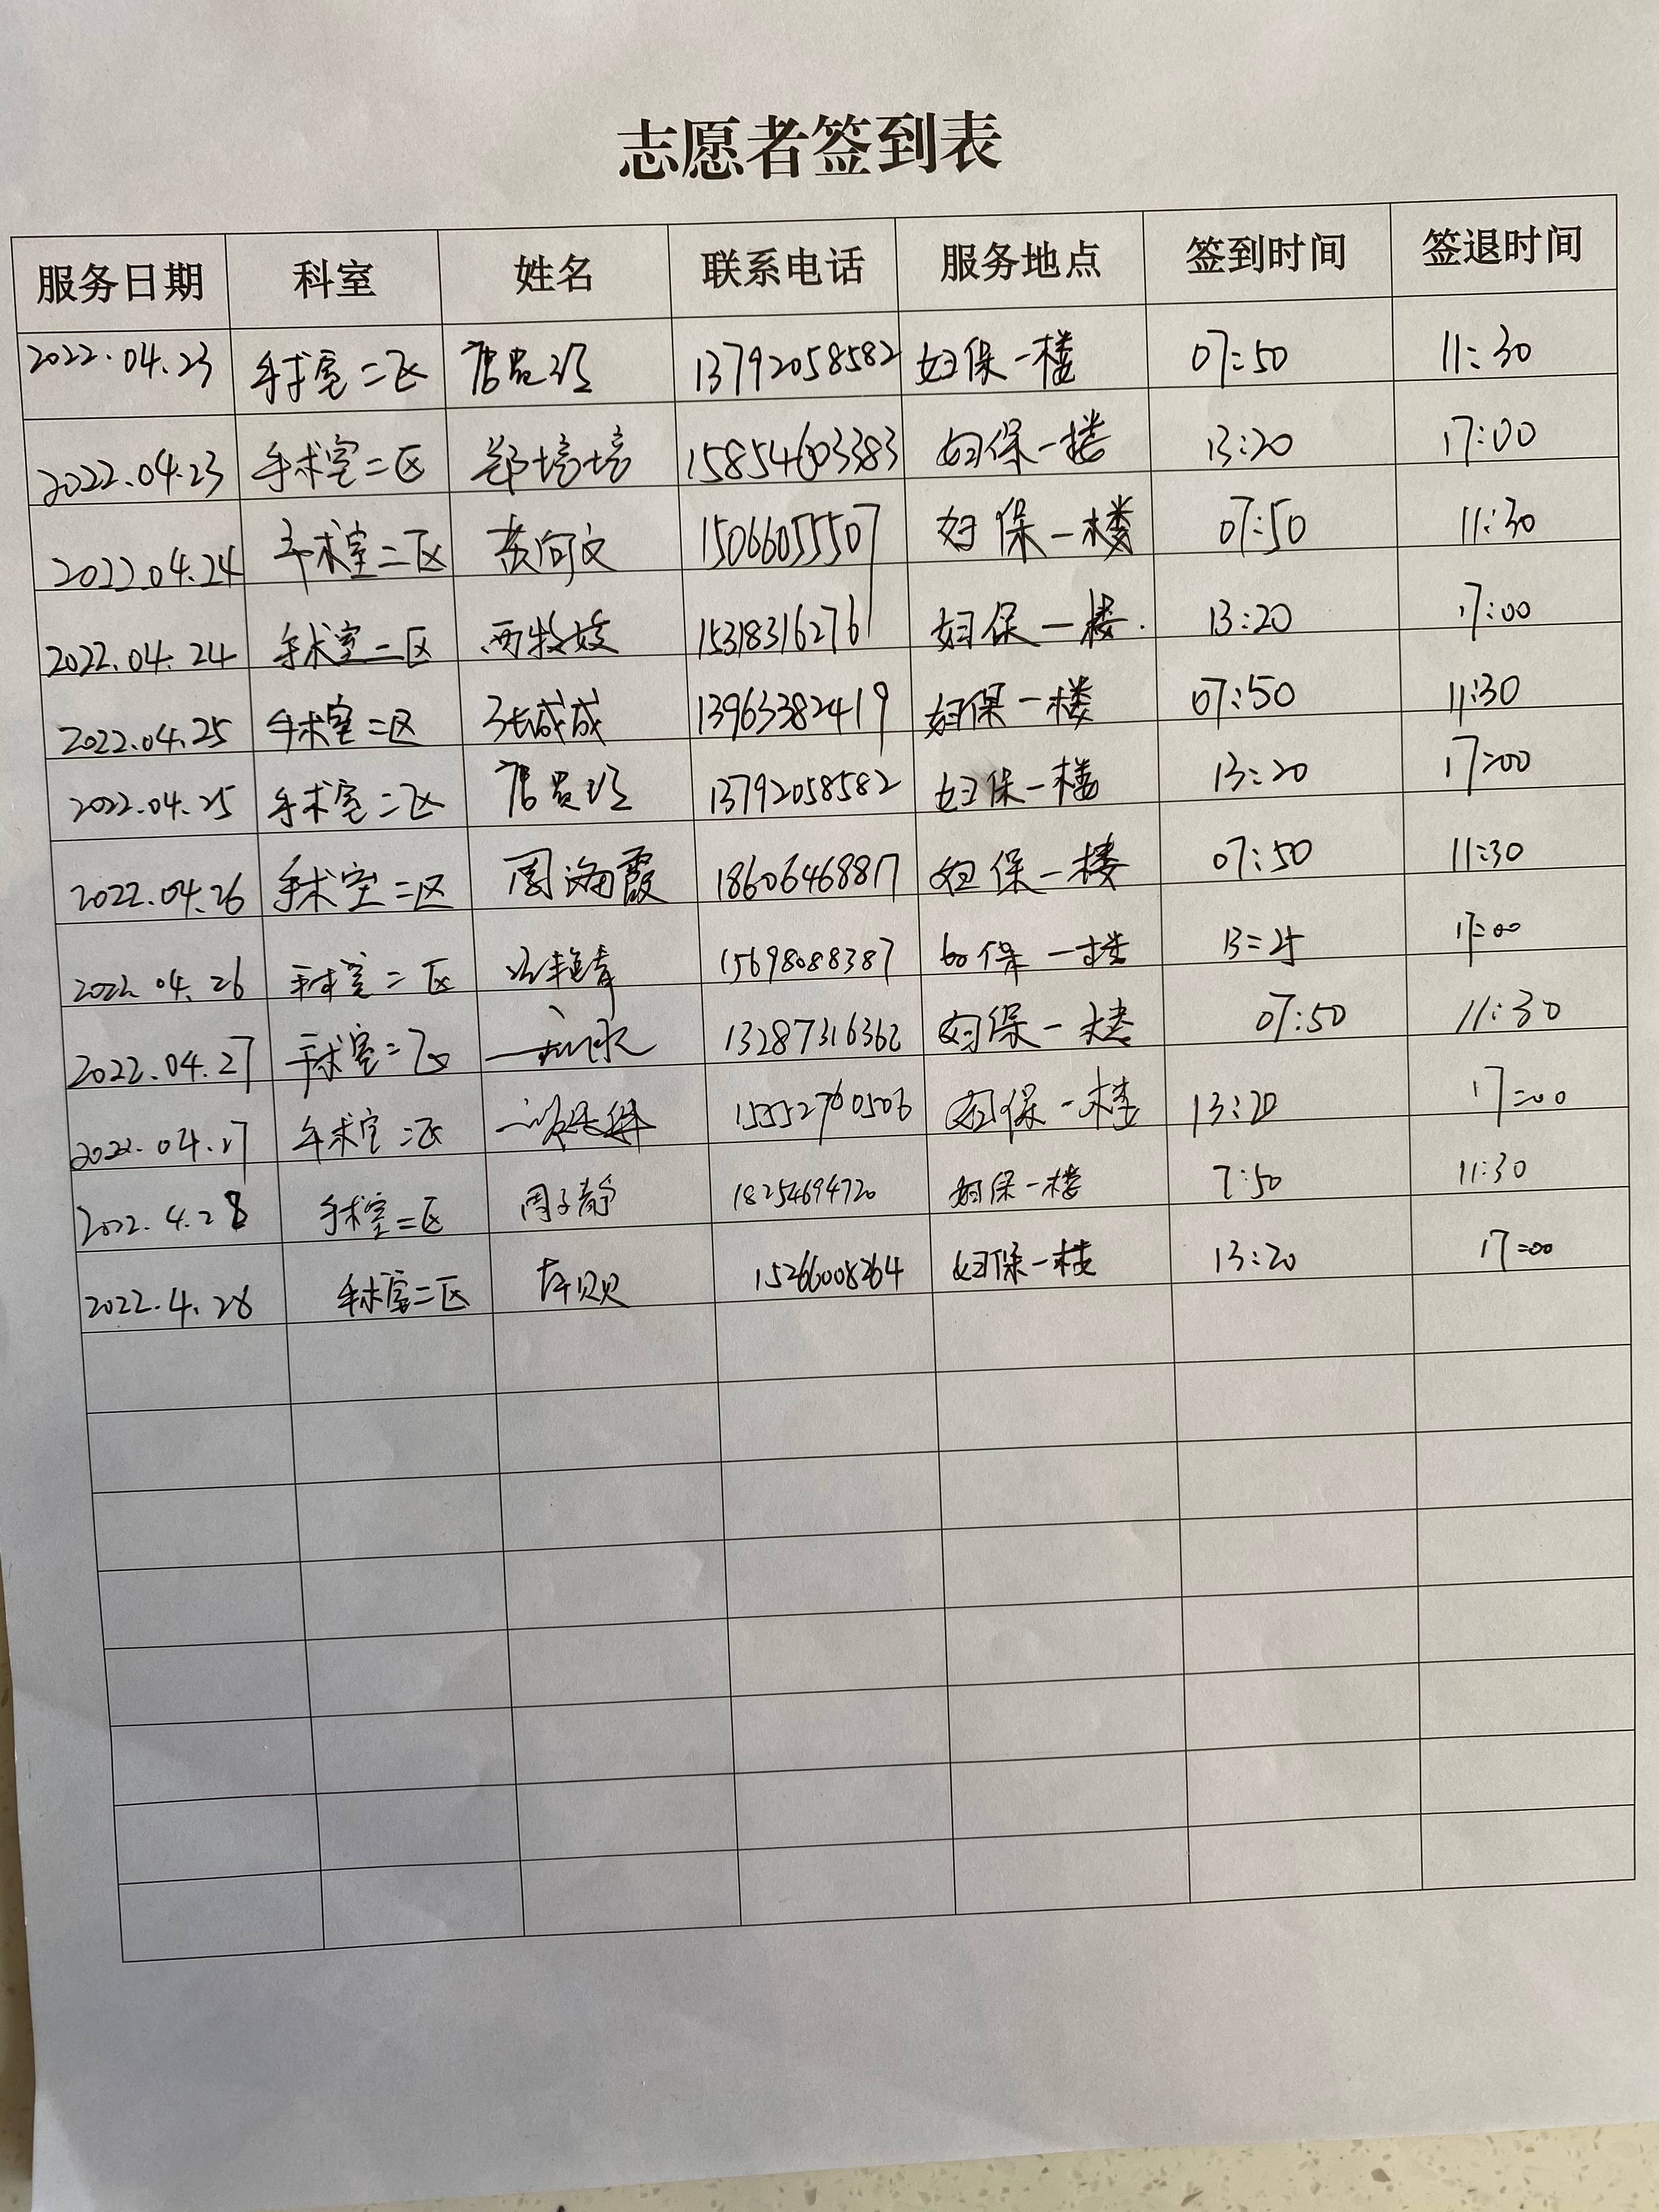 志愿者签到表
服务日期 科室 姓名 联系电话 服务地点 签到时间 签退时间
2022.04.23 手术室二区 13792058582 妇保一楼 07:50 11:30
2022.04.23 手术室二区 郑培培 15854603383 妇保一楼 13:20 17:00
2022.04.24 手术室二区 黄向文 15066055507 妇保一楼 07:50 11:30
2022.04.24 手术室二区 15318316276 妇保一楼. 13:20 17:00
2022.04.25 手术室二区 张成成 13963382419 妇保一楼 07:50 11:30
2022.04.25 手术室二区 13792058582 妇保一楼 13:20 17:00
2022.04.26 手术室二区 周海霞 18606468817 妇保一楼 07:50 11:30
2022.04.26 手术室二区 15698088387 妇保一楼 17:00
2022.04.27 手术室二区 13287316362 妇保一楼 07:50 11:30
2022.04.27 手术室二区 妇保一楼 13:20 17:00
2022.4.28 手术室二区 周子静 18254694720 妇保一楼 7:50 11:30
2022.4.28 手术室二区 15266008264 妇保一楼 13:20 17:00